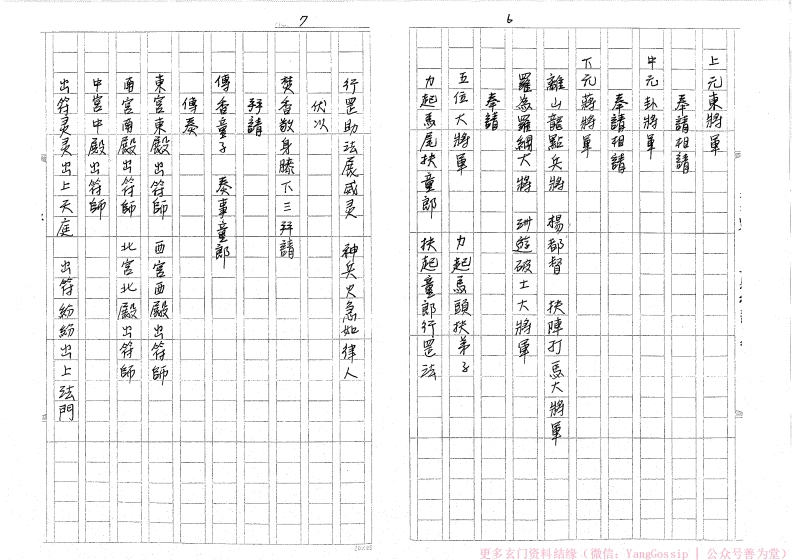 6
上元東將軍
奉請相請
中元卦將軍
奉請相請
下元蔣將軍
離山龍點兵將 楊都督 扶陣打馬大將軍
羅為羅網大將 洲遊破土大將軍
奉請
五位大將軍 力起馬頭扶弟子
力起馬尾扶童郎 扶起童郎行罡法
7
行罡助法展威灵 神兵火急如律人
伏以
焚香敬身膝下三拜請
拜請
傳香童子 奏事童郎
傳奏
東宮東殿出符師 西宮西殿出符師
南宮南殿出符師 北宮北殿出符師
中宮中殿出符師
出符灵灵出上天庭 出符紛紛出上法門
更多玄门资料结缘（微信：YangGossip | 公众号善为堂）